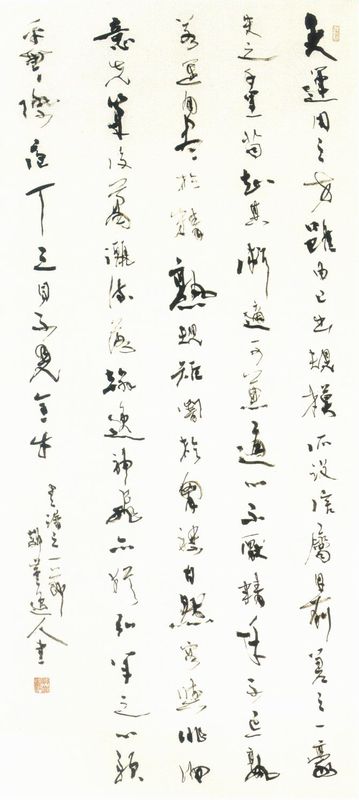 夫運用之方雖由己出規模所設信屬目前差之一豪
失之千里苟知其術適可兼通心不厭精手不忘熟
若運用盡於精熟規矩闇於胸襟自然容與徘徊
意先筆後瀟灑流落翰逸神飛亦猶弘羊之心預
乎無際庖丁之目不見全牛
書譜之一節
逸人書